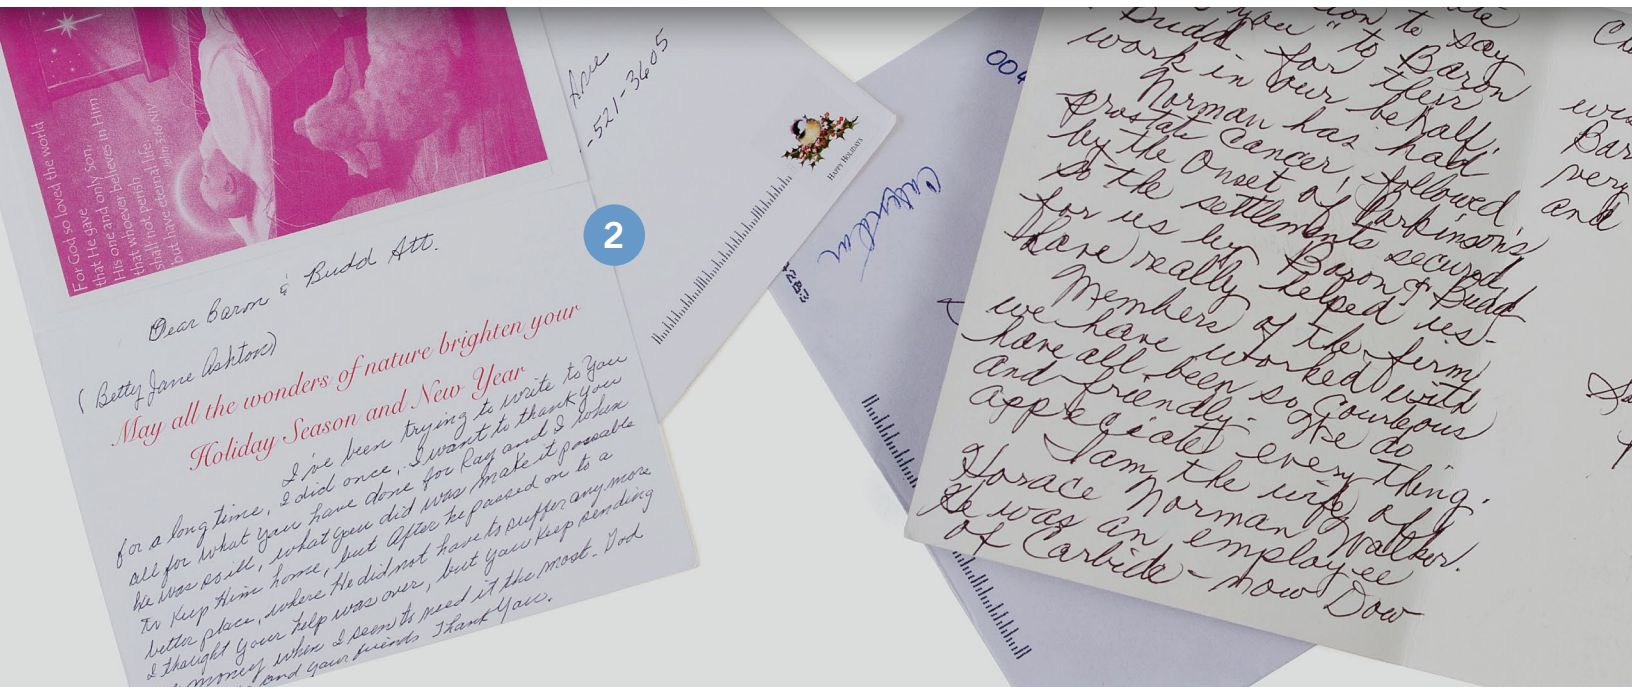 For God so loved the world
that He gave
His one and only Son,
that whoever believes in Him
shall not perish
but have eternal life.
John 3:16 NIV
Dear Baron & Budd Att.
(Betty Jane Ashton)
May all the wonders of nature brighten your
Holiday Season and New Year
I've been trying to write to You
for a long time, I did once. I want to thank you
all for what you have done for Ray and I when
He was so ill, what you did was make it possable
to Keep Him home, but After he passed on to a
better place, where He did not have to suffer any more
I thought your help was over, but you keep sending
money when I seem to need it the most. God
and your friends Thank You.
-521-3605
HAPPY HOLIDAYS
2
004
to say
you" to Baron
& Budd for their
work in our behalf.
Norman has had
prostate Cancer, followed
by the onset of Parkinson's
so the settlements secured
for us by Baron & Budd
have really helped us.
Members of the firm
we have worked with
have all been so courteous
and friendly. We do
appreciate every thing.
I am the wife of
Horace Norman Walker.
He was an employee
of Carbide - now Dow
Bar
very
and